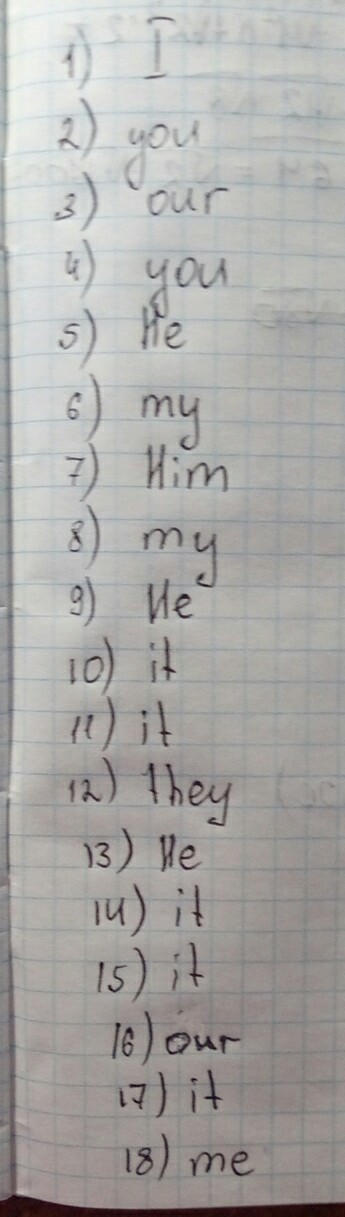 1) I
2) you
3) our
4) you
5) He
6) my
7) Him
8) my
9) He
10) it
11) it
12) they
13) He
14) it
15) it
16) our
17) it
18) me